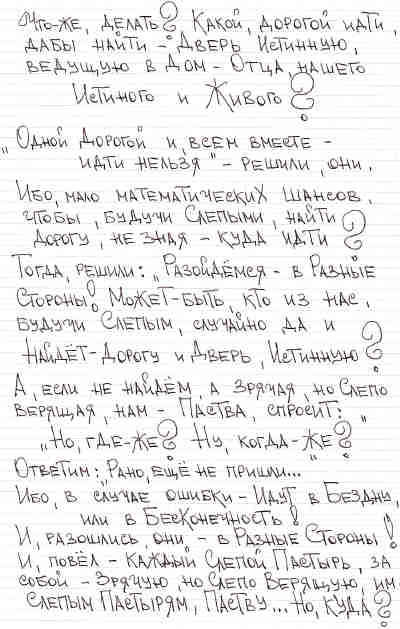 Что-же, делать? Какой, дорогой идти,
дабы найти - Дверь Истинную,
ведущую в Дом - Отца, нашего
Истиного и Живого?
„Одной Дорогой и, всем вместе -
идти нельзя" - решили, они.
Ибо, мало математических шансов,
чтобы, будучи Слепыми, найти
дорогу, не зная - куда идти?
Тогда, решили: „Разойдёмся - в Разные
Стороны! Может-быть, кто из нас,
будучи Слепым, случайно да и
найдёт - Дорогу и Дверь, Истинную?
А, если не найдём, а Зрячая, но Слепо
верящая, нам - Паства, спросит:
„Но, где-же? Ну, когда-же?"
Ответим: „Рано, ещё не пришли...
Ибо, в случае ошибки - Идут в Бездну,
или в Бесконечность!
И, разошлись, они - в Разные Стороны!
И, повёл - каждый Слепой Пастырь, за
собой - Зрячую, но Слепо Верящую, им
Слепым Пастырям, Паству... Но, куда?